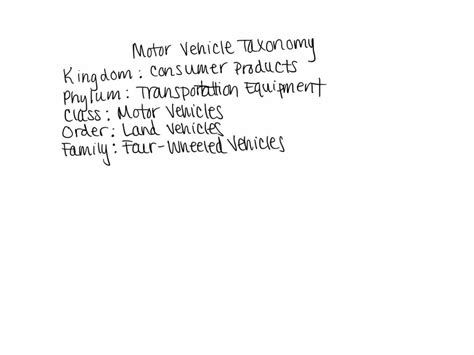 Motor Vehicle Taxonomy
Kingdom: Consumer Products
Phylum: Transportation Equipment
Class: Motor Vehicles
Order: Land Vehicles
Family: Four-Wheeled Vehicles